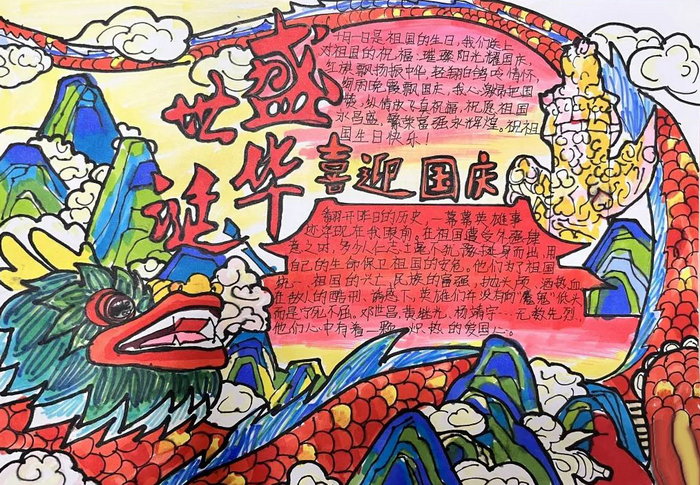 盛世华诞
喜迎国庆
十月一日是祖国的生日,我们送上
对祖国的祝福:璀璨阳光耀国庆,
红旗飘扬振中华,轻翔白鸽
国庆,我心激昂把国
放飞真祝福,祝愿祖国
永昌盛,繁荣富强永辉煌。祝祖
国生日快乐!
翻开昨日的历史,一幕幕英雄事
迹浮现在我眼前。在祖国遭受外强肆
虐之时,多少仁人志士毫不犹豫挺身而出,用
自己的生命保卫祖国的安危。他们为了祖国
祖国的兴亡,民族的富强,抛头颅,洒热血
在敌人的酷刑、诱惑下,英雄们并没有向“魔鬼”低头
而是宁死不屈。邓世昌、黄继光、杨靖宇……无数先烈
他们心中有着一颗炽热的爱国心。